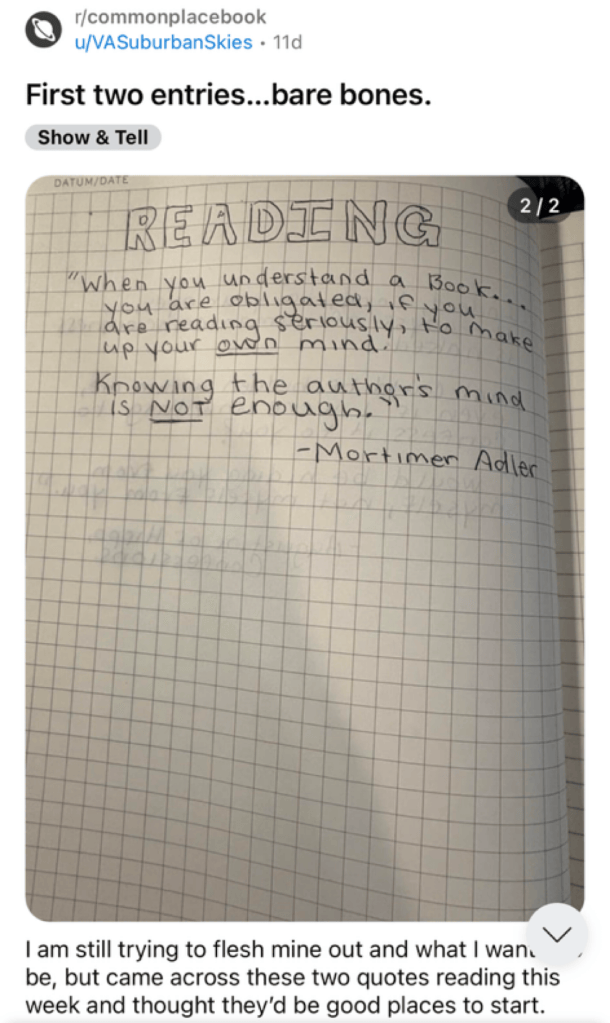 r/commonplacebook
u/VASuburbanSkies • 11d
First two entries...bare bones.
Show & Tell
DATUM/DATE
2/2
READING
"When you understand a Book...
you are obligated, if you
are reading seriously, to make
up your own mind.
Knowing the author's mind
is NOT enough."
-Mortimer Adler
I am still trying to flesh mine out and what I want
be, but came across these two quotes reading this
week and thought they'd be good places to start.